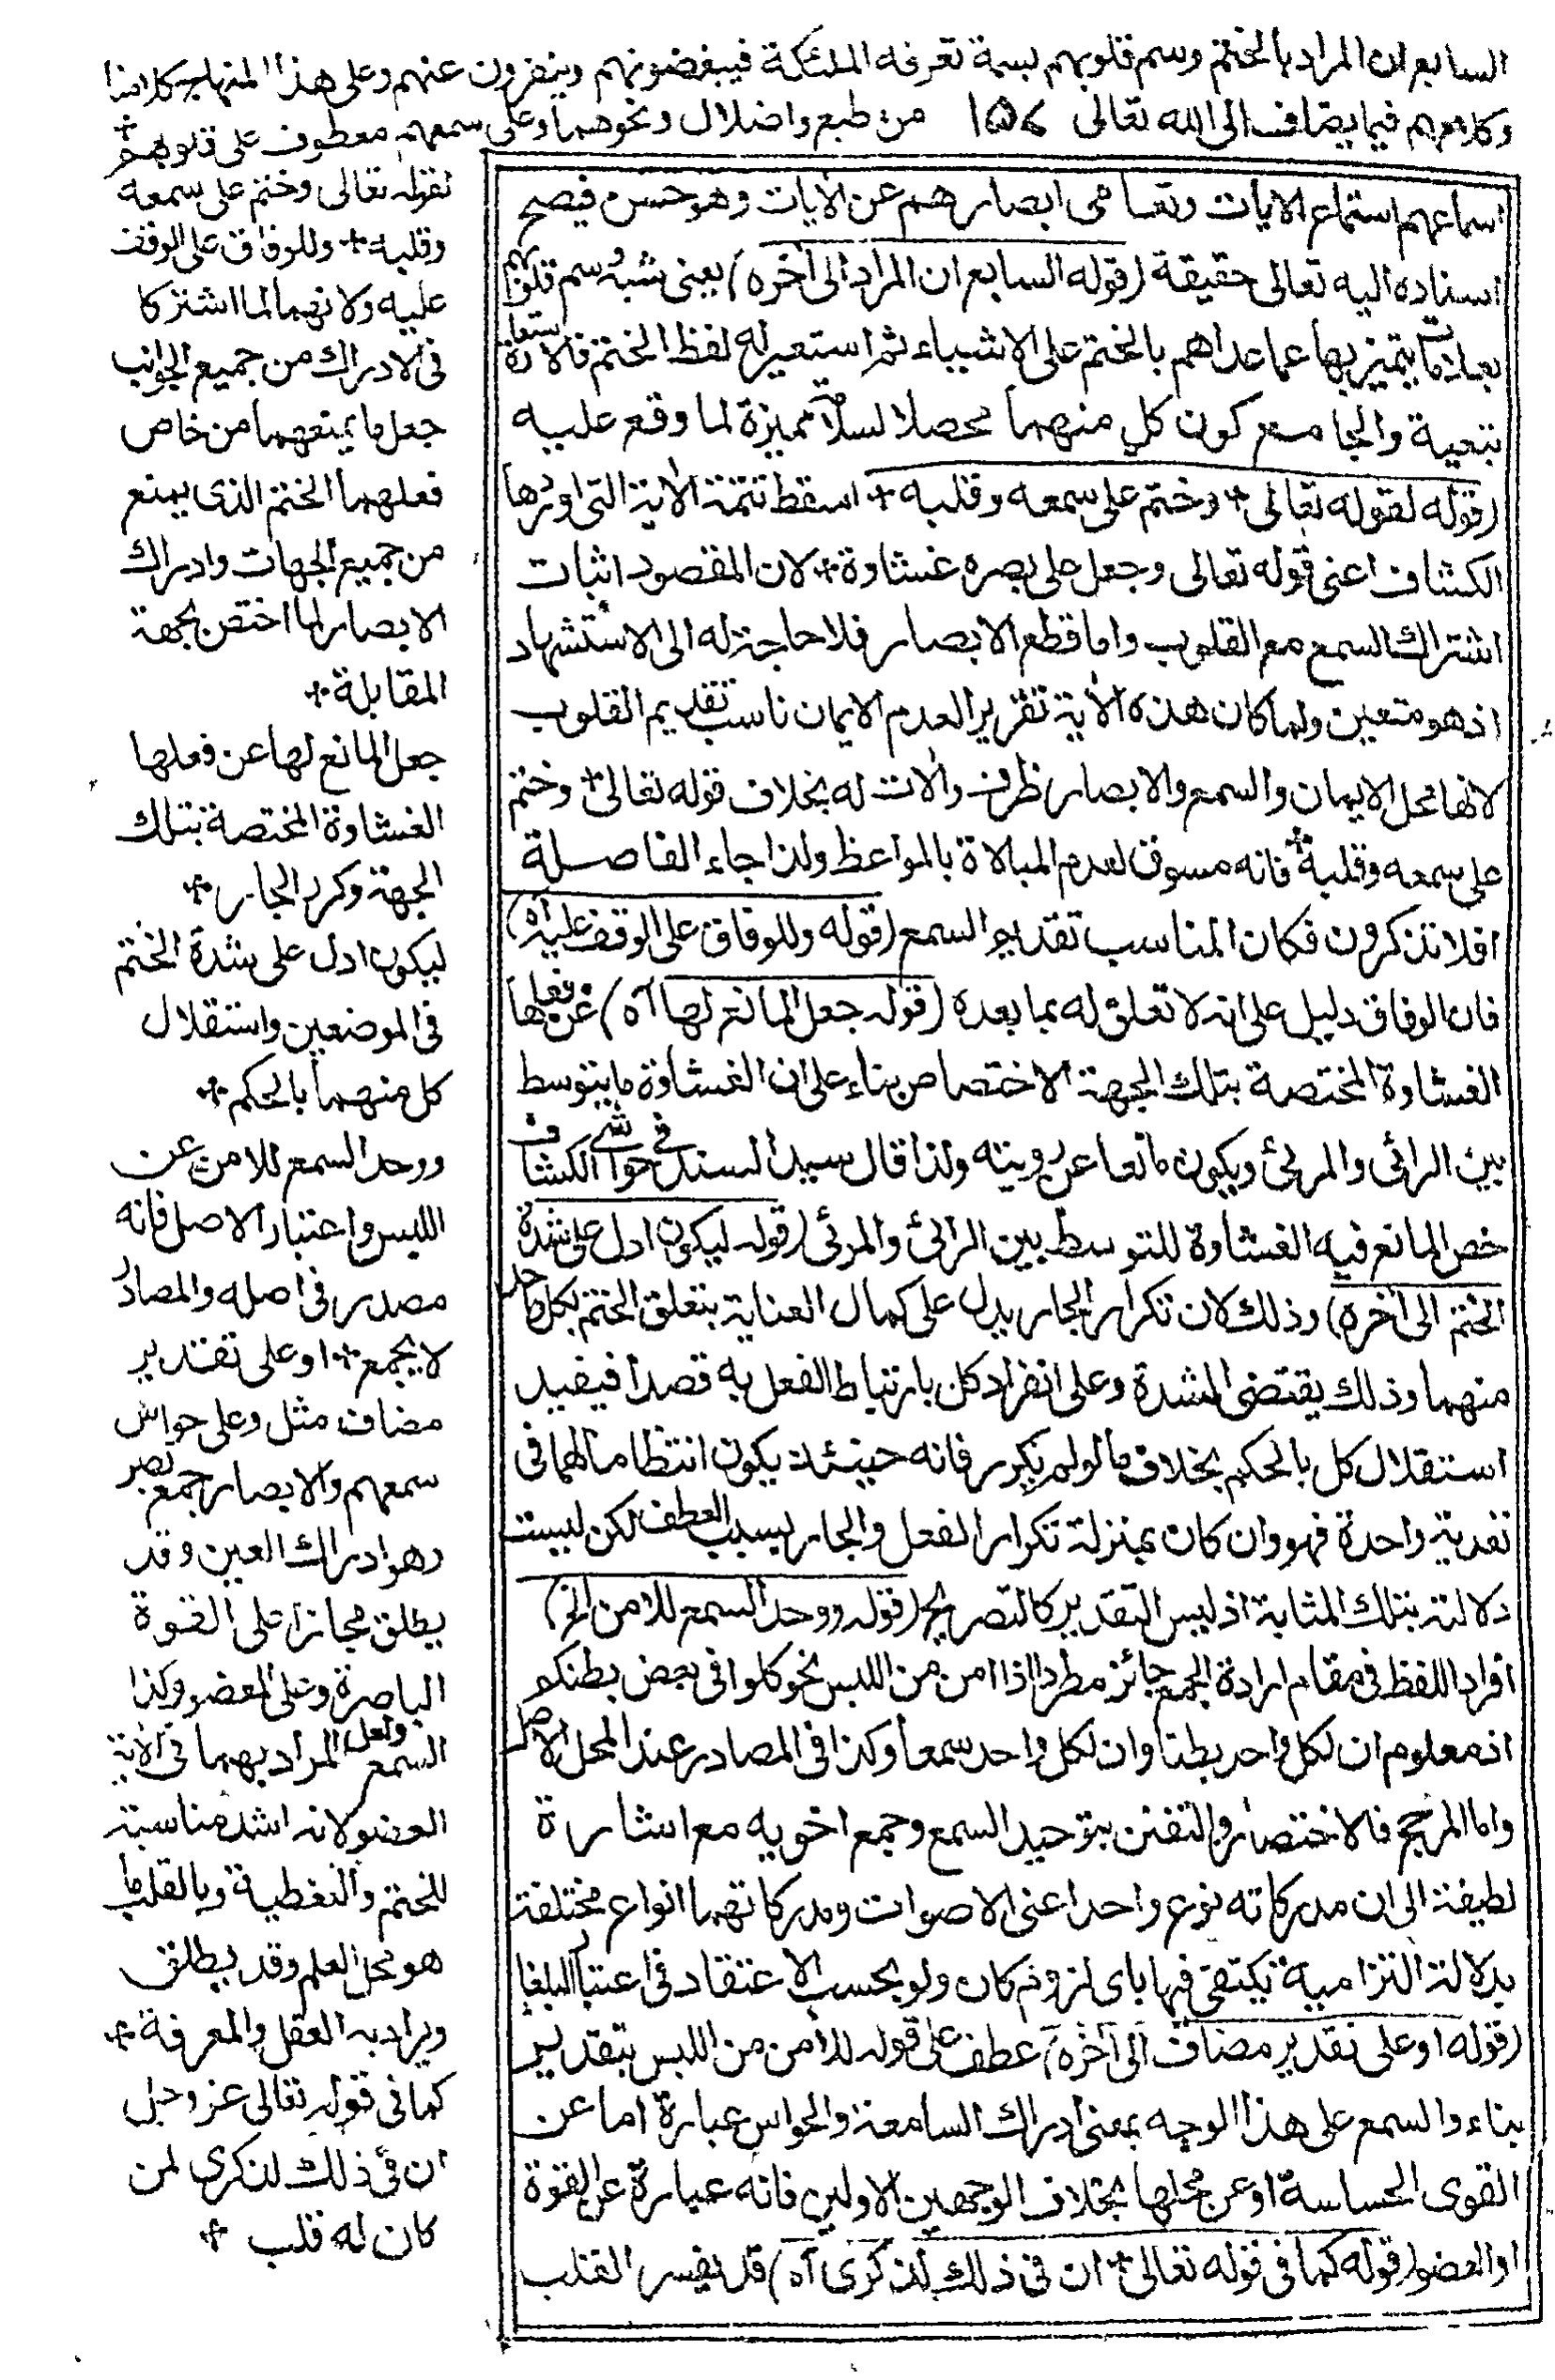 السابع ان المراد بالختم وسم قلوبهم بسمة تعرفه الملئكة فيبغضونهم وينفرون عنهم وعلى هذا المنهاج كلامنا
وكلامهم فيما يضاف الى الله تعالى ١٥٦ من طبع واضلال ونحوهما وعلى سمعهم معطوف على قلوبهم +
لقوله تعالى وختم على سمعه
وقلبه + وللوفاق على الوقف
عليه ولانهما لما اشتركا
فى الادراك من جميع الجوانب
جعل ما يمنعهما من خاص
فعلهما الختم الذى يمنع
من جميع الجهات وادراك
الابصار لما اختص بجهة
المقابلة +
جعل المانع لها عن فعلها
الغشاوة المختصة بتلك
الجهة وكرر الجار +
ليكون ادل على شدة الختم
فى الموضعين واستقلال
كل منهما بالحكم +
ووحد السمع للامن عن
اللبس واعتبار الاصل فانه
مصدر فى اصله والمصادر
لا يجمع + او على تقدير
مضاف مثل وعلى حواس
سمعهم والابصار جمع بصر
وهو ادراك العين وقد
يطلق مجازا على القوة
الباصرة وعلى العضو وكذا
السمع ولعل المراد بهما فى الاية
العضو لانه اشد مناسبة
للختم والتغطية وبالقلب ما
هو محل العلم وقد يطلق
ويراد به العقل والمعرفة +
كما فى قوله تعالى عز وجل
ان فى ذلك لذكرى لمن
كان له قلب +
اسماعهم استماع الايات وتعامى ابصارهم عن الايات وهو حسن فيصح
اسناده اليه تعالى حقيقة (قوله السابع ان المراد الى اخره) يعنى شبه وسم قلوبهم
بعلامات يتميز بها عما عداهم بالختم على الاشياء ثم استعير له لفظ الختم فالاستعارة
تبعية والجامع كون كل منهما محصلا لعلامة مميزة لما وقع عليه
(قوله لقوله تعالى + وختم على سمعه وقلبه + اسقط تتمة الاية التى اوردها
الكشاف اعنى قوله تعالى وجعل على بصره غشاوة + لان المقصود اثبات
اشتراك السمع مع القلوب واما قطع الابصار فلا حاجة له الى الاستشهاد
اذ هو متعين ولما كان هذه الاية تقرير العدم الايمان ناسب تقديم القلوب
لانها محل الايمان والسمع والابصار ظرف والات له بخلاف قوله تعالى + وختم
على سمعه وقلبه + فانه مسوق لعدم المبالاة بالمواعظ ولذا جاء الفاصلة
افلا تذكرون فكان المناسب تقديم السمع (قوله وللوفاق على الوقف عليه اه)
فان الوفاق دليل على انه لا تعلق له بما بعده (قوله جعل المانع لها اه) عن فعلها
الغشاوة المختصة بتلك الجهة الاختصاص بناء على ان الغشاوة ما يتوسط
بين الرائى والمرئى ويكون مانعا عن رويته ولذا قال سيد السند فى حواشى الكشاف
خص المانع فيه الغشاوة للتوسط بين الرائى والمرئى (قوله ليكون ادل على شدة
الختم الى اخره) وذلك لان تكرار الجار يدل على كمال العناية بتعلق الختم بكل واحد
منهما وذلك يقتضى الشدة وعلى انفراد كل بارتباط الفعل به قصدا فيفيد
استقلال كل بالحكم بخلاف ما لو لم يكرر فانه حينئذ يكون انتظامالهما فى
تعدية واحدة فهو وان كان بمنزلة تكرار الفعل والجار بسبب العطف لكن ليست
دلالته بتلك المثابة اذ ليس التقدير كالتصريح (قوله ووحد السمع للامن الخ)
افراد اللفظ فى مقام ارادة الجمع جائز مطردا اذا امن من اللبس نحو كلوا فى بعض بطنكم
اذ معلوم ان لكل واحد بطنا وان لكل واحد سمعا وكذا فى المصادر عند المحل الاصل
واما المرجح فالاختصار والتفنن بتوحيد السمع وجمع اخويه مع اشارة
لطيفة الى ان مدركاته نوع واحد اعنى الاصوات ومدركاتهما انواع مختلفة
بدلالة التزامية يكتفى فيها باى لزوم كان ولو بحسب الاعتقاد فى اعتبار البلغا
(قوله او على تقدير مضاف الى اخره) عطف على قوله للامن من اللبس بتقدير
بناء والسمع على هذا الوجه بمعنى ادراك السامعة والحواس عبارة اما عن
القوى الحساسة او عن محلها بخلاف الوجهين الاولين فانه عبارة عن القوة
او العضو (قوله كما فى قوله تعالى + ان فى ذلك لذكرى اه) قد يفسر القلب